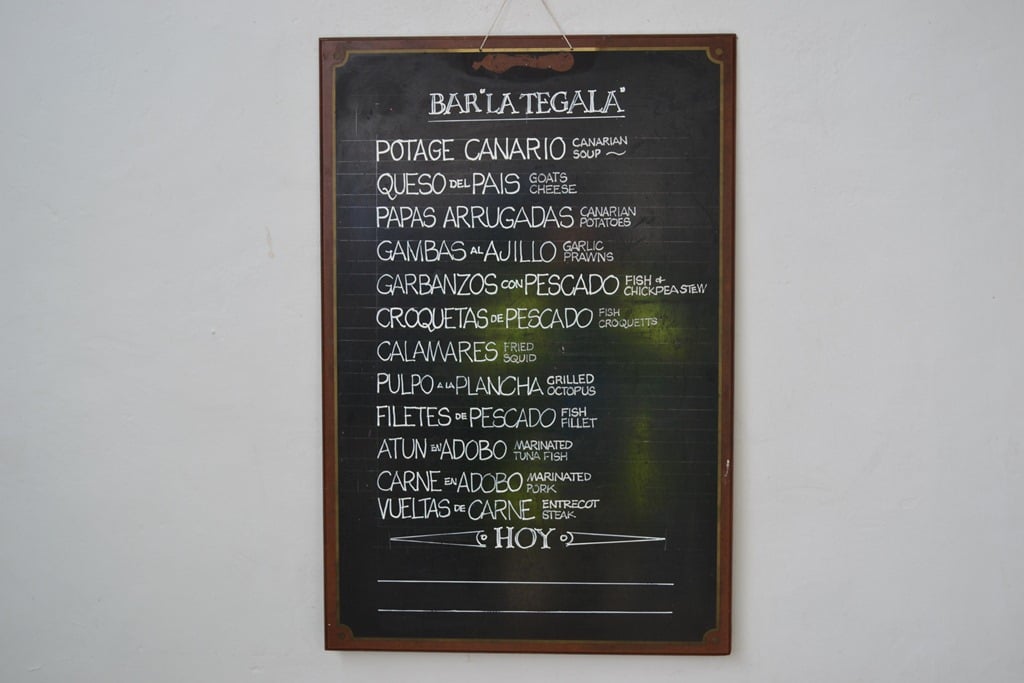 BAR "LA TEGALA"
POTAGE CANARIO CANARIAN SOUP
QUESO DEL PAIS GOATS CHEESE
PAPAS ARRUGADAS CANARIAN POTATOES
GAMBAS AL AJILLO GARLIC PRAWNS
GARBANZOS CON PESCADO FISH & CHICKPEA STEW
CROQUETAS DE PESCADO FISH CROQUETTS
CALAMARES FRIED SQUID
PULPO A LA PLANCHA GRILLED OCTOPUS
FILETES DE PESCADO FISH FILLET
ATUN EN ADOBO MARINATED TUNA FISH
CARNE EN ADOBO MARINATED PORK
VUELTAS DE CARNE ENTRECOT STEAK
HOY